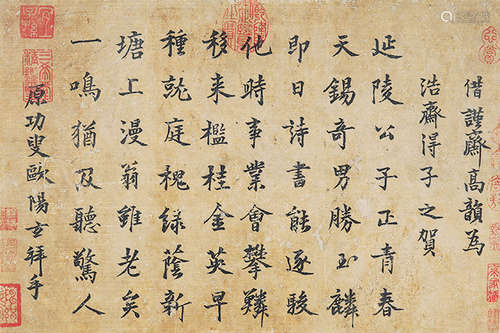 借謹齋高韻為
浩齋得子之賀
延陵公子正青春
天錫奇男勝玉麟
即日詩書能逐駿
他時事業會攀鱗
移來檻桂金英早
種就庭槐綠蔭新
塘上漫翁雖老矣
一鳴猶及聽驚人
原功叟歐陽玄拜手